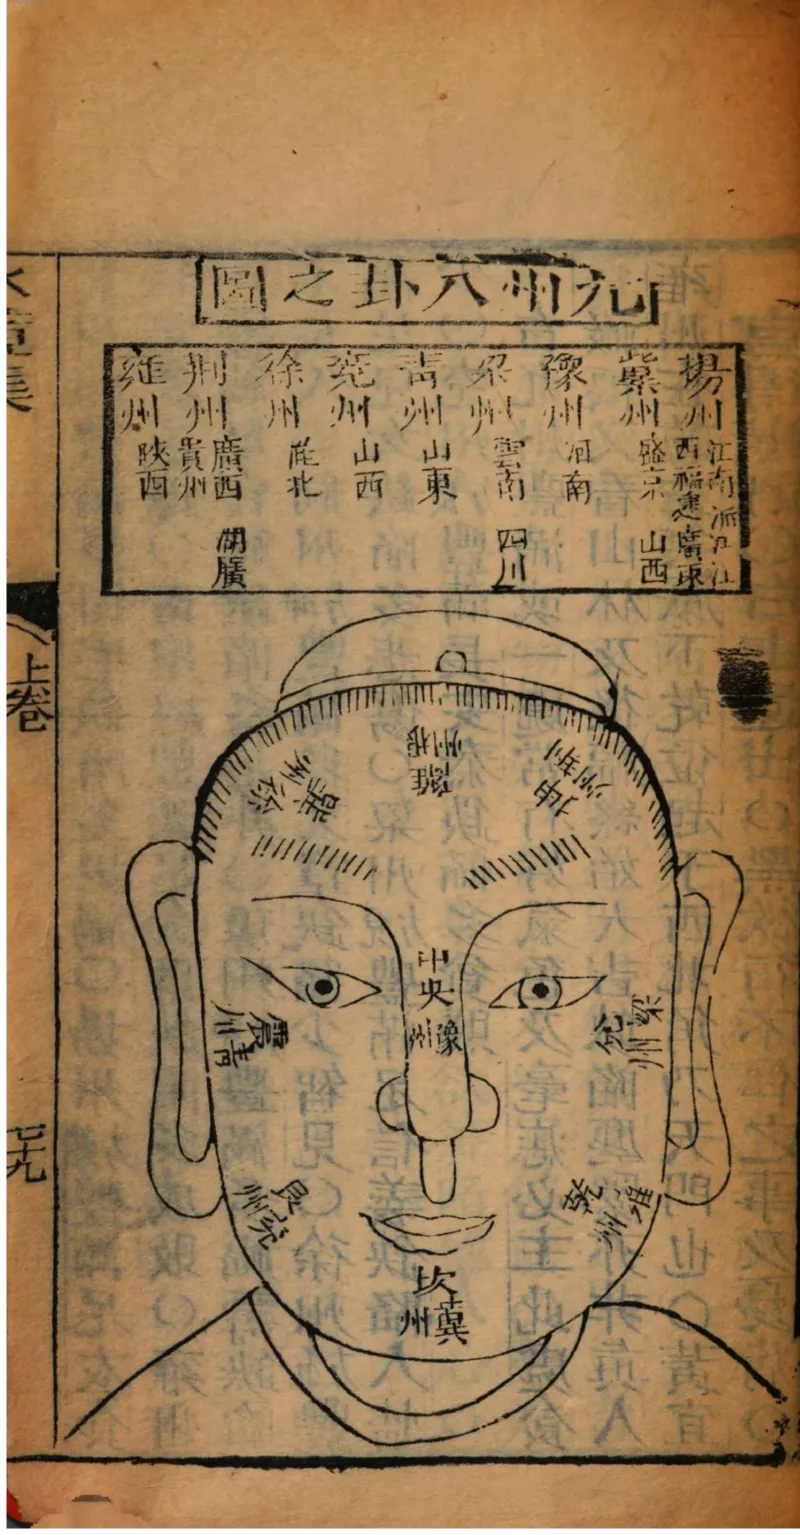 九州八卦之圖
揚州 江南 浙江 江西 福建 廣東
冀州 盛京 山西
豫州 河南
梁州 雲南 四川
青州 山東
兖州 山西
徐州 淮北
荆州 廣西 湖廣 貴州
雍州 陜西
離 揚州
坤 荆州
巽 徐州
中央 豫州
兌 梁州
震 青州
乾 雍州
艮 兖州
坎 冀州
上卷